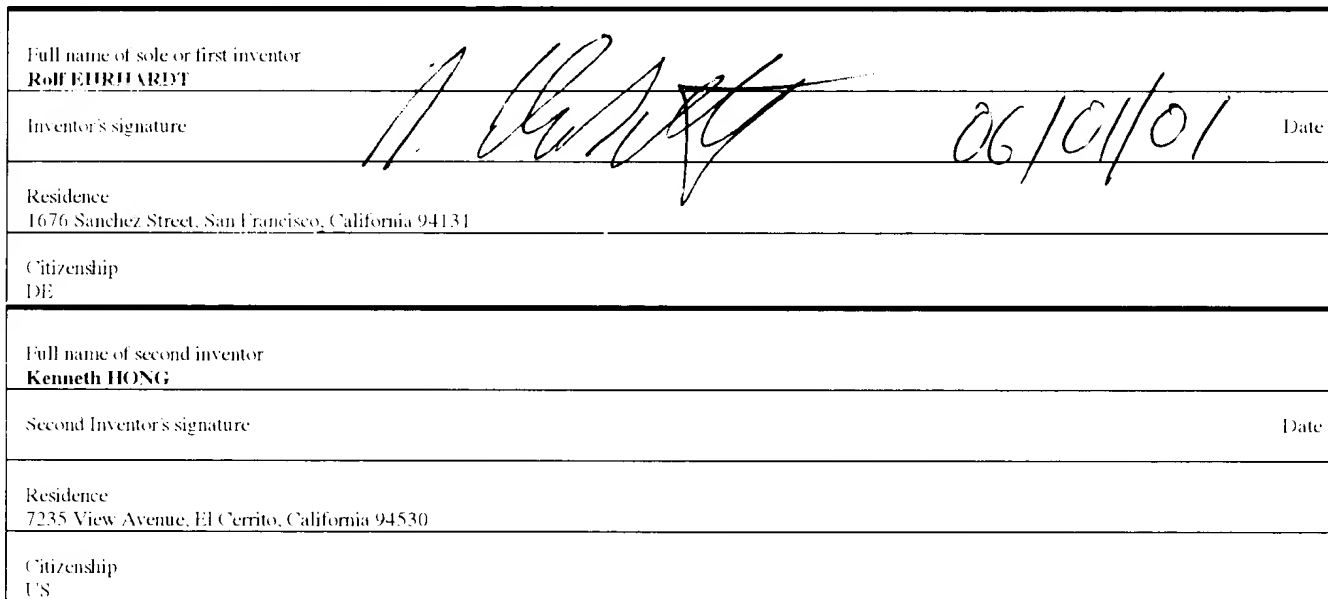 Full name of sole or first inventor
Rolf EHRHARDT
Inventor's signature 06/01/01 Date
Residence
1676 Sanchez Street, San Francisco, California 94131
Citizenship
DE
Full name of second inventor
Kenneth HONG
Second Inventor's signature Date
Residence
7235 View Avenue, El Cerrito, California 94530
Citizenship
US